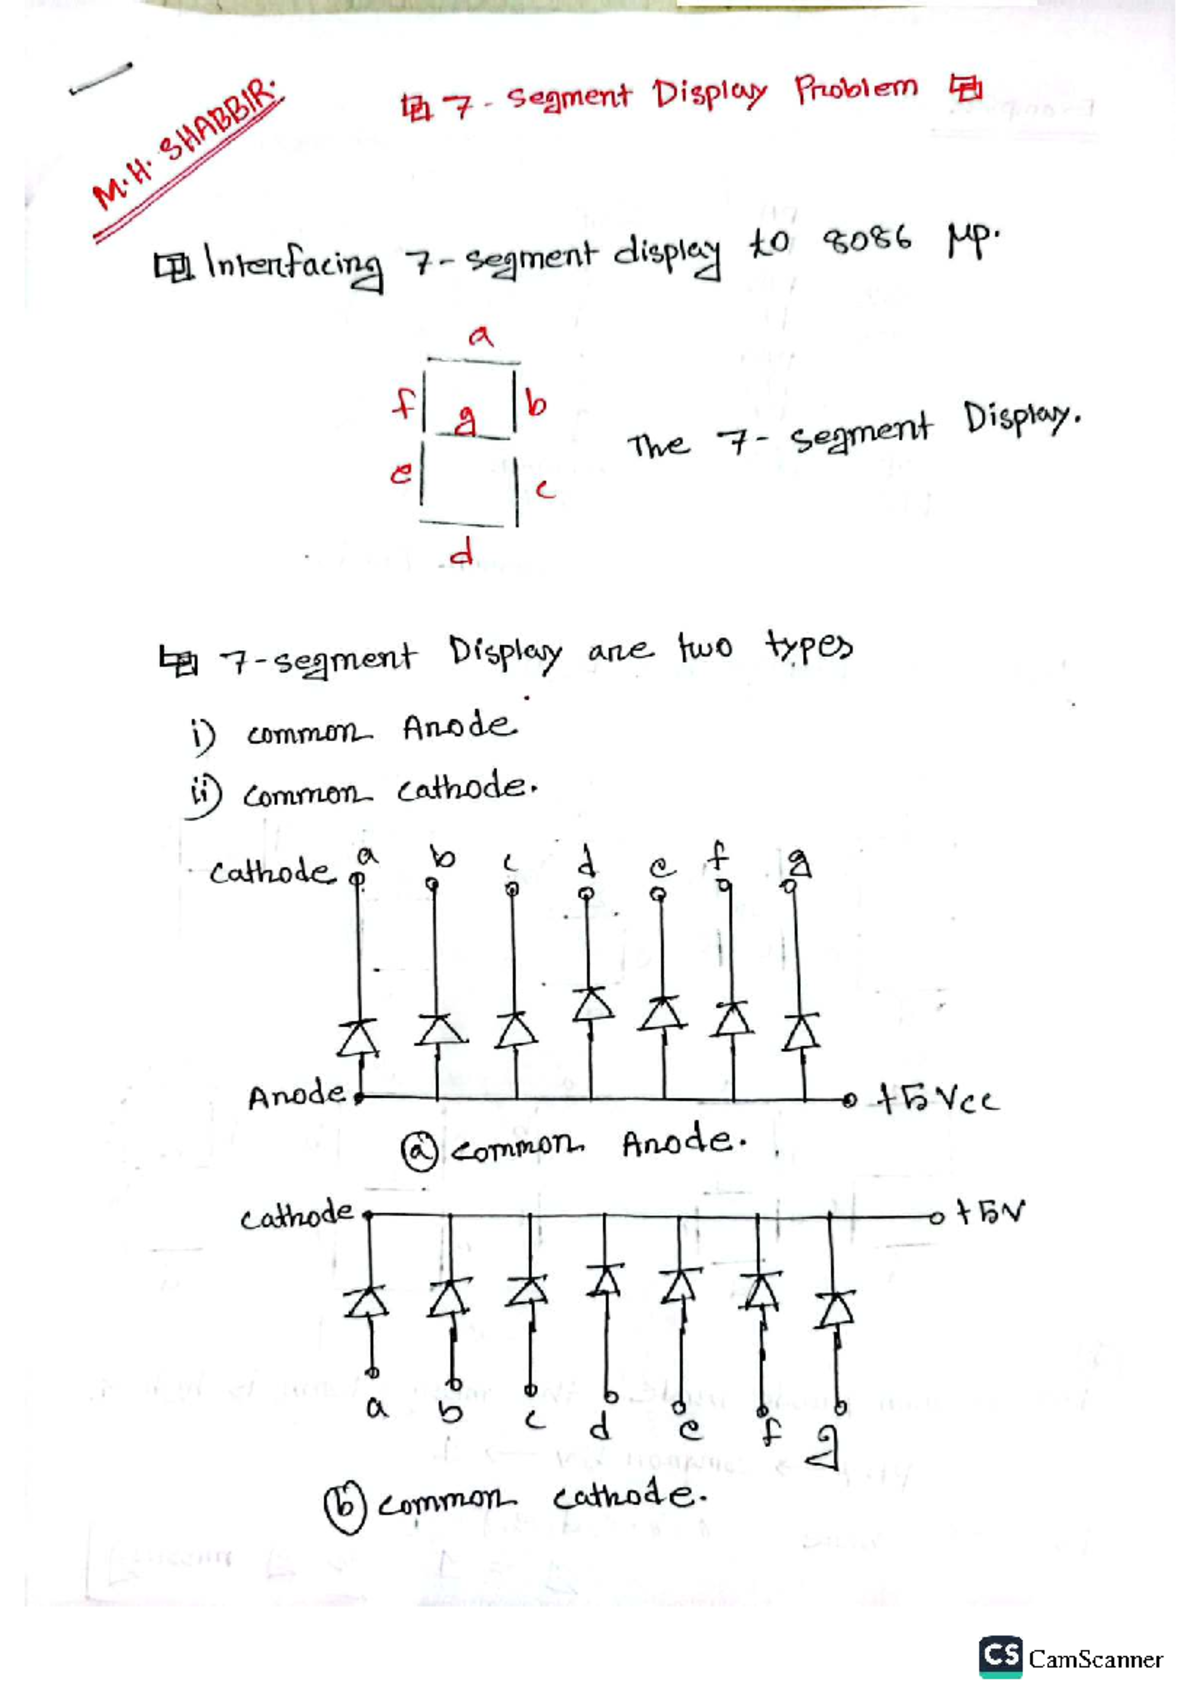 7 - Segment Display Problem
M.H. SHABBIR.
Interfacing 7 - segment display to 8086 μp.
a
f g b
The 7 - segment Display.
e c
d
7 - segment Display are two types
i) common Anode
ii) common cathode.
cathode a b c d e f g
Anode +5Vcc
(a) common Anode.
cathode +5V
a b c d e f g
(b) common cathode.
CS CamScanner